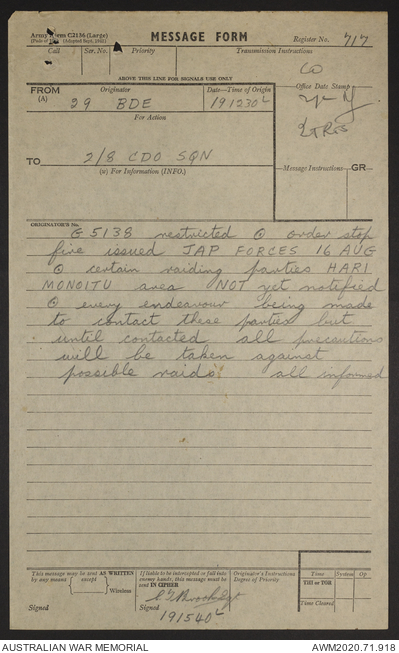 Army Form C2136 (Large)
MESSAGE FORM
Register No. 717
Call
Ser. No.
Priority
Transmission Instructions
ABOVE THIS LINE FOR SIGNALS USE ONLY
CO
FROM
(A)
Originator
29 BDE
Date—Time of Origin
191230L
Office Date Stamp
For Action
2 TPS
TO 2/8 CDO SQN
(W) For Information (INFO.)
Message Instructions
GR
ORIGINATOR'S No.
G 5138 restricted @ order stop
fire issued JAP FORCES 16 AUG
@ certain raiding parties HARI
MONOITU area NOT yet notified
@ every endeavour being made
to contact these parties but
until contacted all precautions
will be taken against
possible raids. all informed
This message may be sent AS WRITTEN
by any means { except } Wireless
If liable to be intercepted or fall into
enemy hands, this message must be
sent IN CIPHER
Originator's Instructions
Degree of Priority
Time
System
Op
THI or TOR
Time Cleared
Signed
Signed
191540L
AUSTRALIAN WAR MEMORIAL
AWM2020.71.918